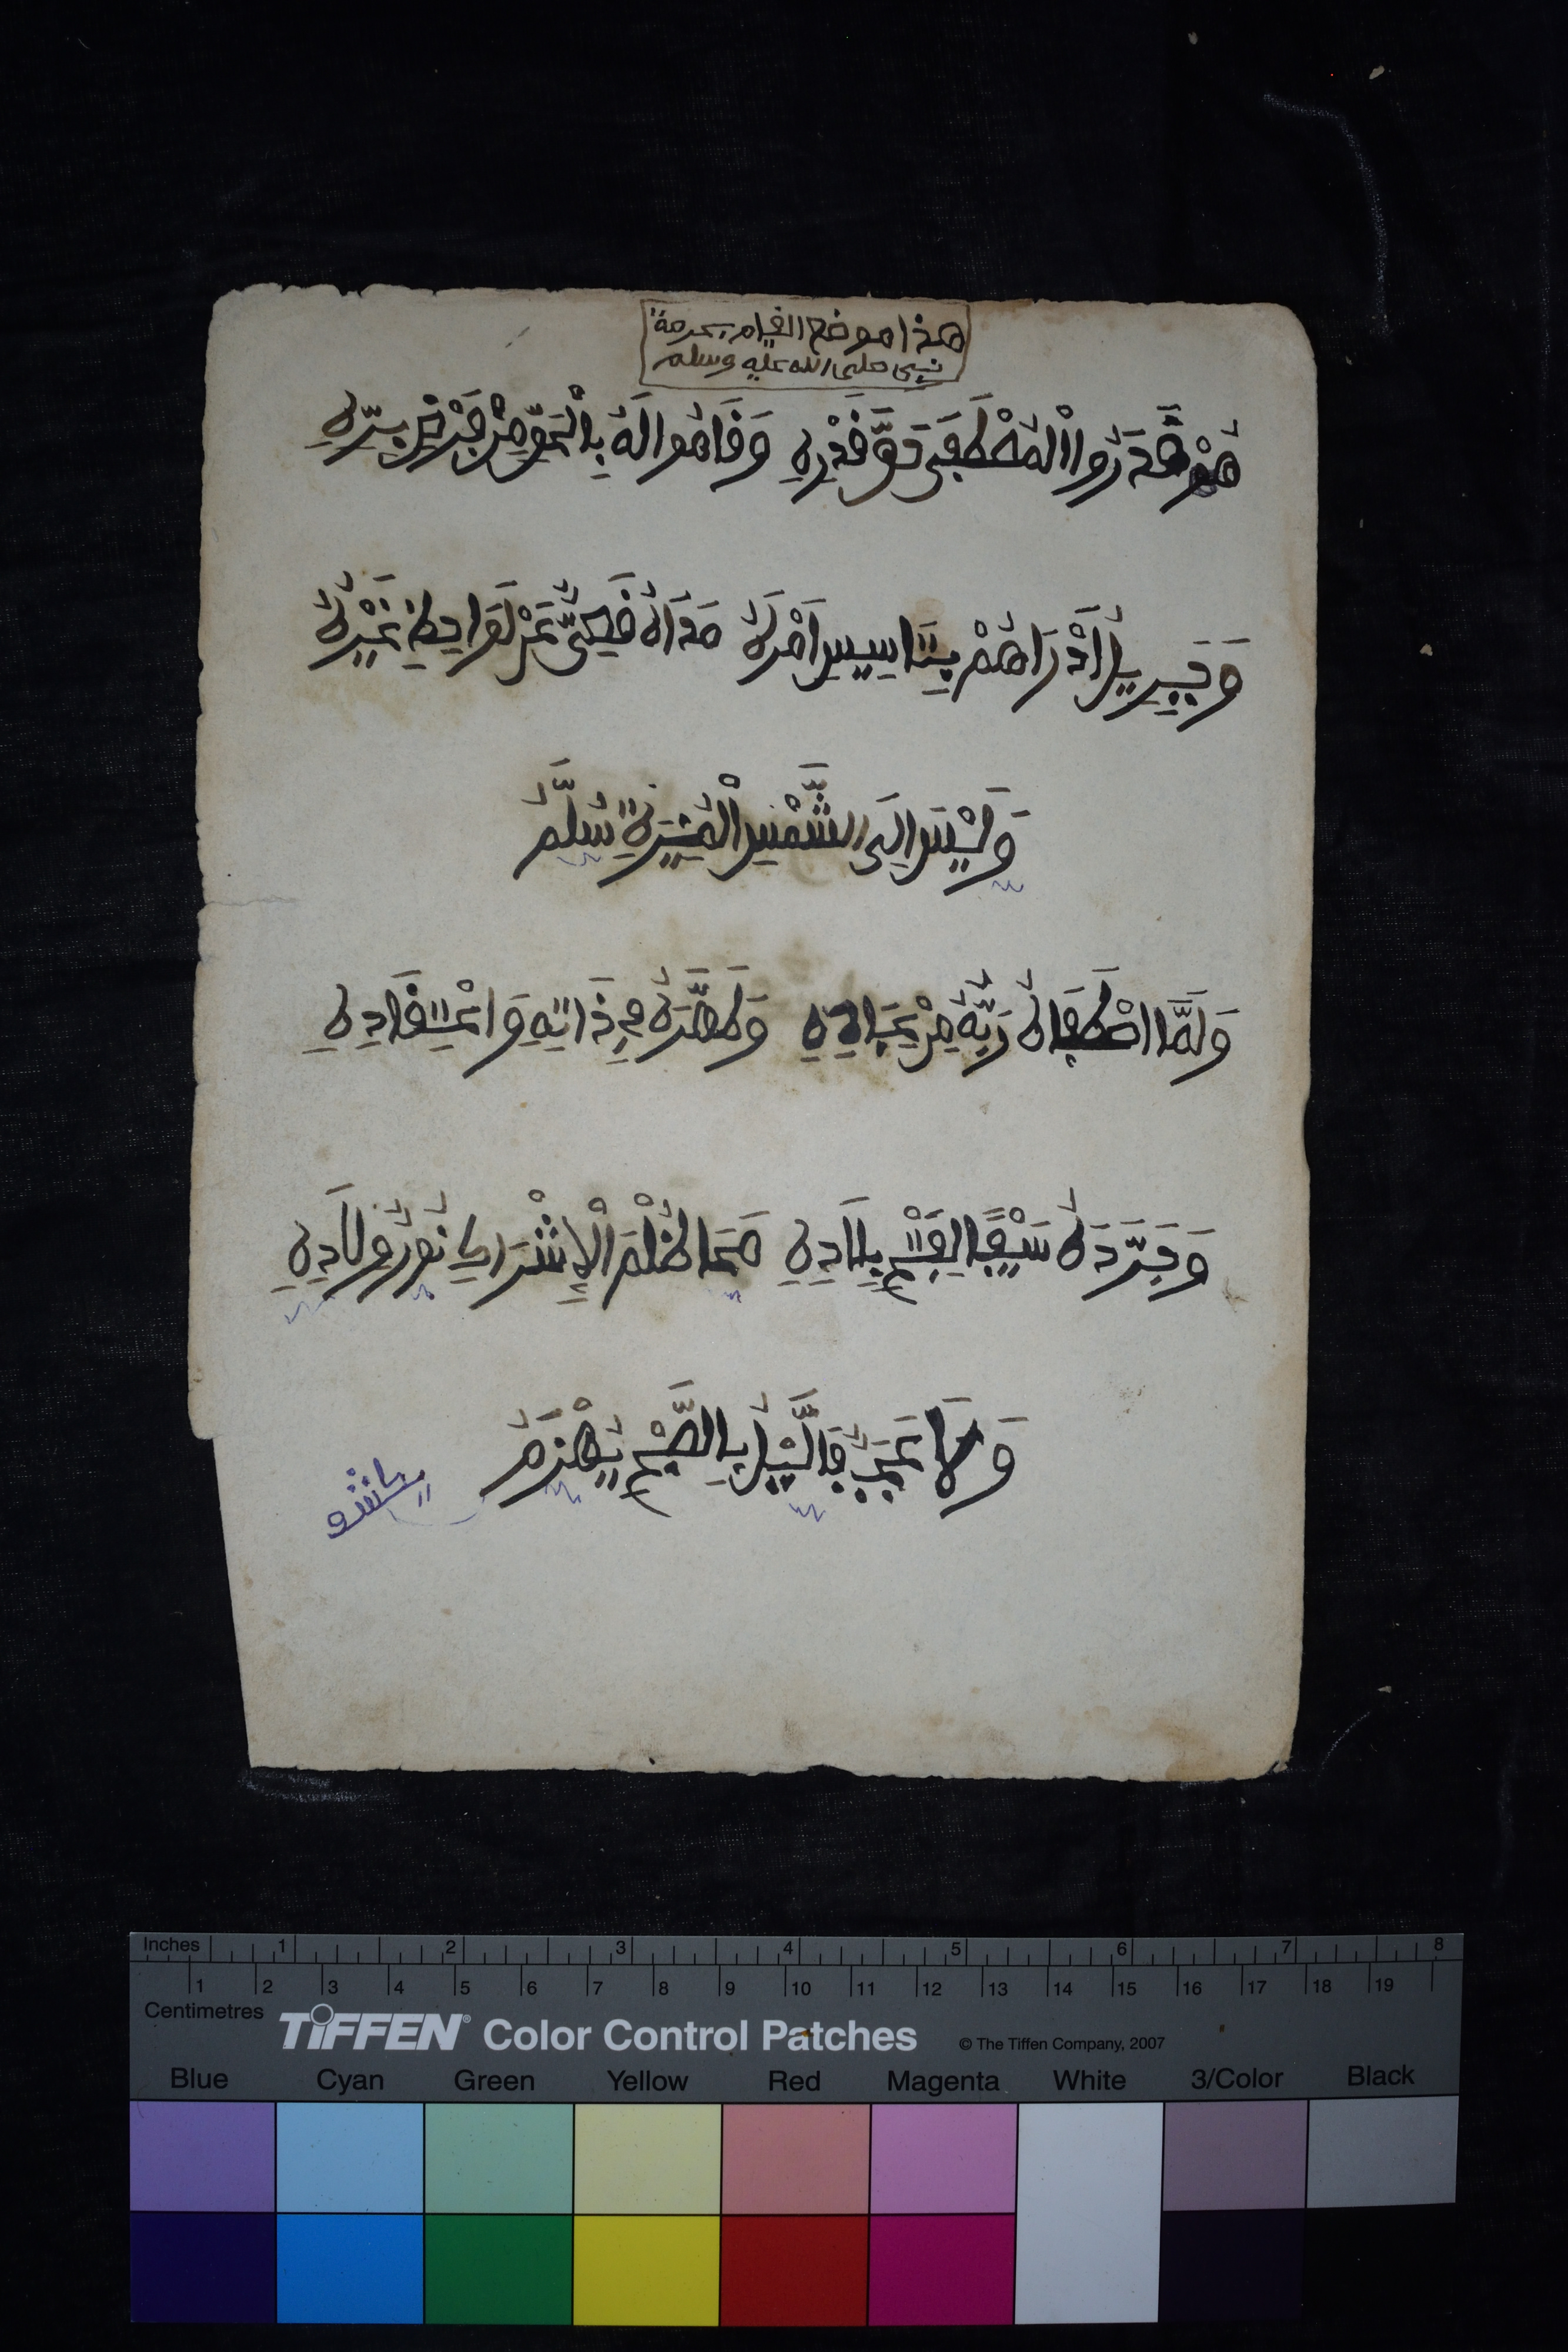 هذا موضع القيام بحرمة
نبي صلى الله عليه وسلم
هُمْ قَدَرُوا الْمُصْطَفَى حَقَّ قَدْرِهِ وَقَامُوا لَهُ بِالْحَقِّ مِنْ فَرْضِ بِرِّهِ
وَجِبْرِيلُ إِذْ رَاهُمْ بِتَاسِيسِ اَمْرِهِ مَدَاهُ قَصِيٌّ عَنْ لَوَاحِظِ غَيْرِهِ
وَلَيْسَ اِلَى الشَّمْسِ الْمُنِيرَةِ سُلَّمُ
وَلَمَّا اصْطَفَاهُ رَبُّهُ مِنْ عِبَادِهِ وَطَهَّرَهُ فِي ذَاتِهِ وَاعْتِقَادِهِ
وَجَرَّدَهُ سَيْفًا لِفَتْحِ بِلَادِهِ مَحَا ظُلْمَ الْإِشْرَاكِ نُورُ وِلَادِهِ
وَلَا عَجَبٌ فَالَّيْلُ بِالصُّبْحِ يُهْزَمُ
Inches 1 2 3 4 5 6 7 8
1 2 3 4 5 6 7 8 9 10 11 12 13 14 15 16 17 18 19
Centimetres
TIFFEN® Color Control Patches © The Tiffen Company, 2007
Blue Cyan Green Yellow Red Magenta White 3/Color Black